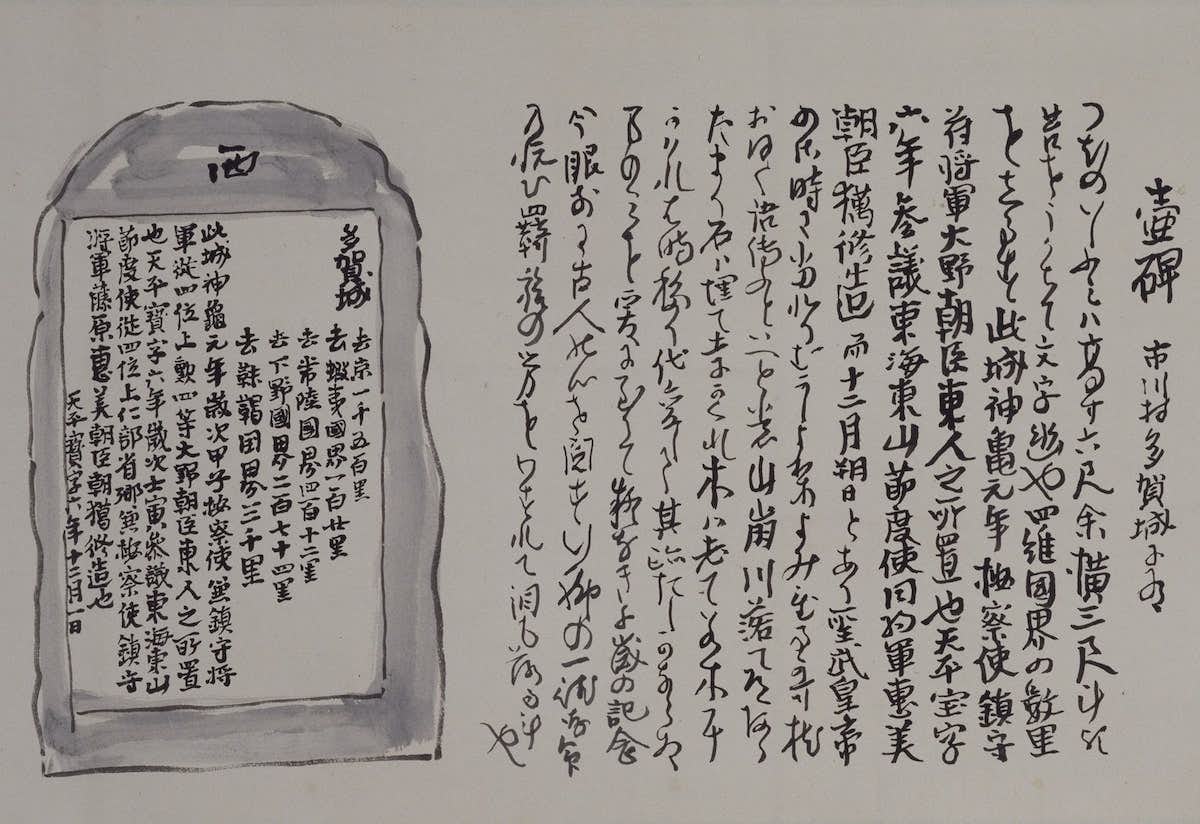 壺碑 市川村多賀城に有
つぼのいしぶみハ高サ六尺余横三尺斗歟
苔をうがちて文字幽也四維国界の数里
をしるす此城神亀元年按察使鎮守
苻将軍大野朝臣東人之所置也天平宝字
六年参議東海東山節度使同将軍恵美
朝臣獦修造而十二月朔日とあり聖武皇帝
の御時に当れりむかしよりよみ置る哥枕
おほく語伝ふといへども山崩川落て道改
たまり石ハ埋て土にかくれ木ハ老てわか木に
かハれば時移り代変して其跡たしかならぬ
事のミを爰に至りて疑なき千歳の記念
今眼前に古人の心を閲す行脚の一徳存命
の悦ひ羇旅の労をわすれて泪も落る斗
也
西
多賀城
去京一千五百里
去蝦夷國界一百廿里
去常陸國界四百十二里
去下野國界二百七十四里
去靺鞨国界三千里
此城神龜元年歳次甲子按察使兼鎮守将
軍従四位上勲四等大野朝臣東人之所置
也天平寶字六年歳次壬寅参議東海東山
節度使従四位上仁部省卿兼按察使鎮守
将軍藤原恵美朝臣朝獦修造也
天平寶字六年十二月一日